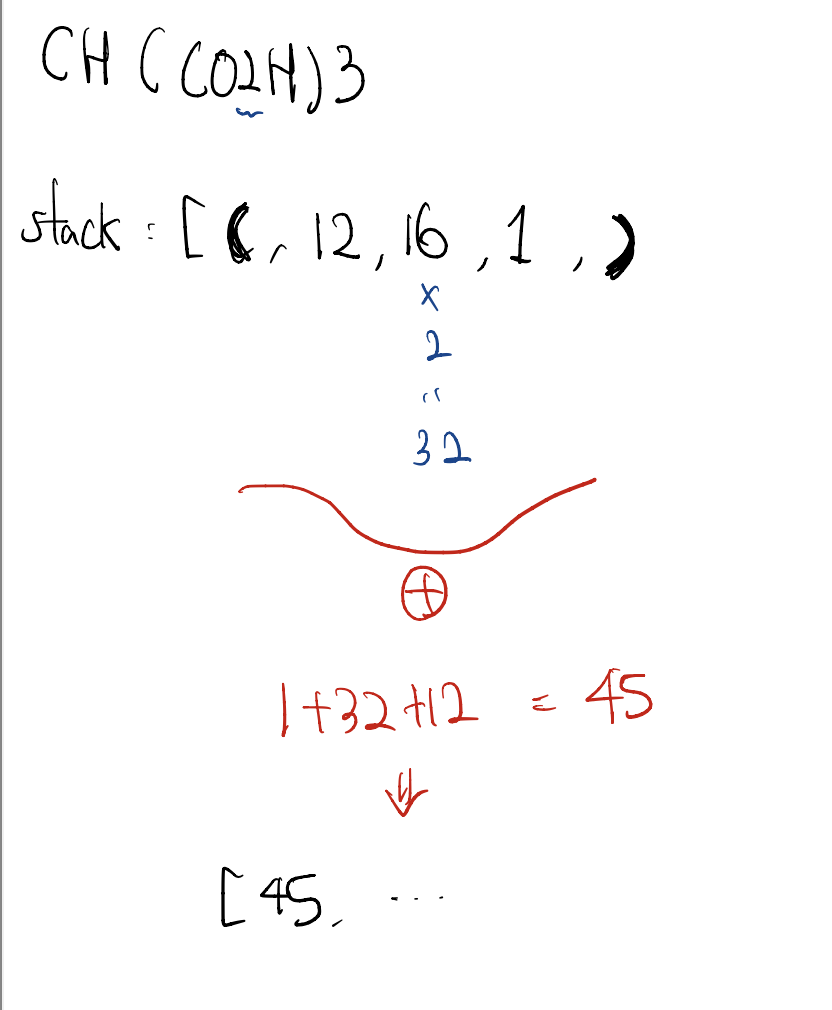 CH((CO2H)3
stack : [(, 12, 16, 1, )
x
2
"
32
+
1+32+12 = 45
[45, ...